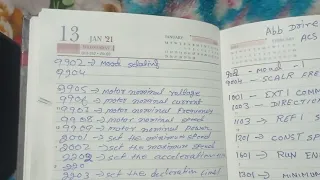 13 JAN 21
WEDNESDAY
FEBRUARY
9902 → Mood selating
9904
9905 → motor nominal voltage
9906 → motor nominal current
→ motor nominal
9908 → motor nominal speed
9909 → motor nominal power
2001 → set the minimum speed
2002 → set the maximum speed
2202 → set the acceleration
2203 → set the decleration time
Abb Drive
ACS
SCALR FRE
1001 → EXT 1 COMM
1003 → DIRECTION
1103 → REF 1 S
1201 → CONST SP
1601 → RUN EN
MINIMUM